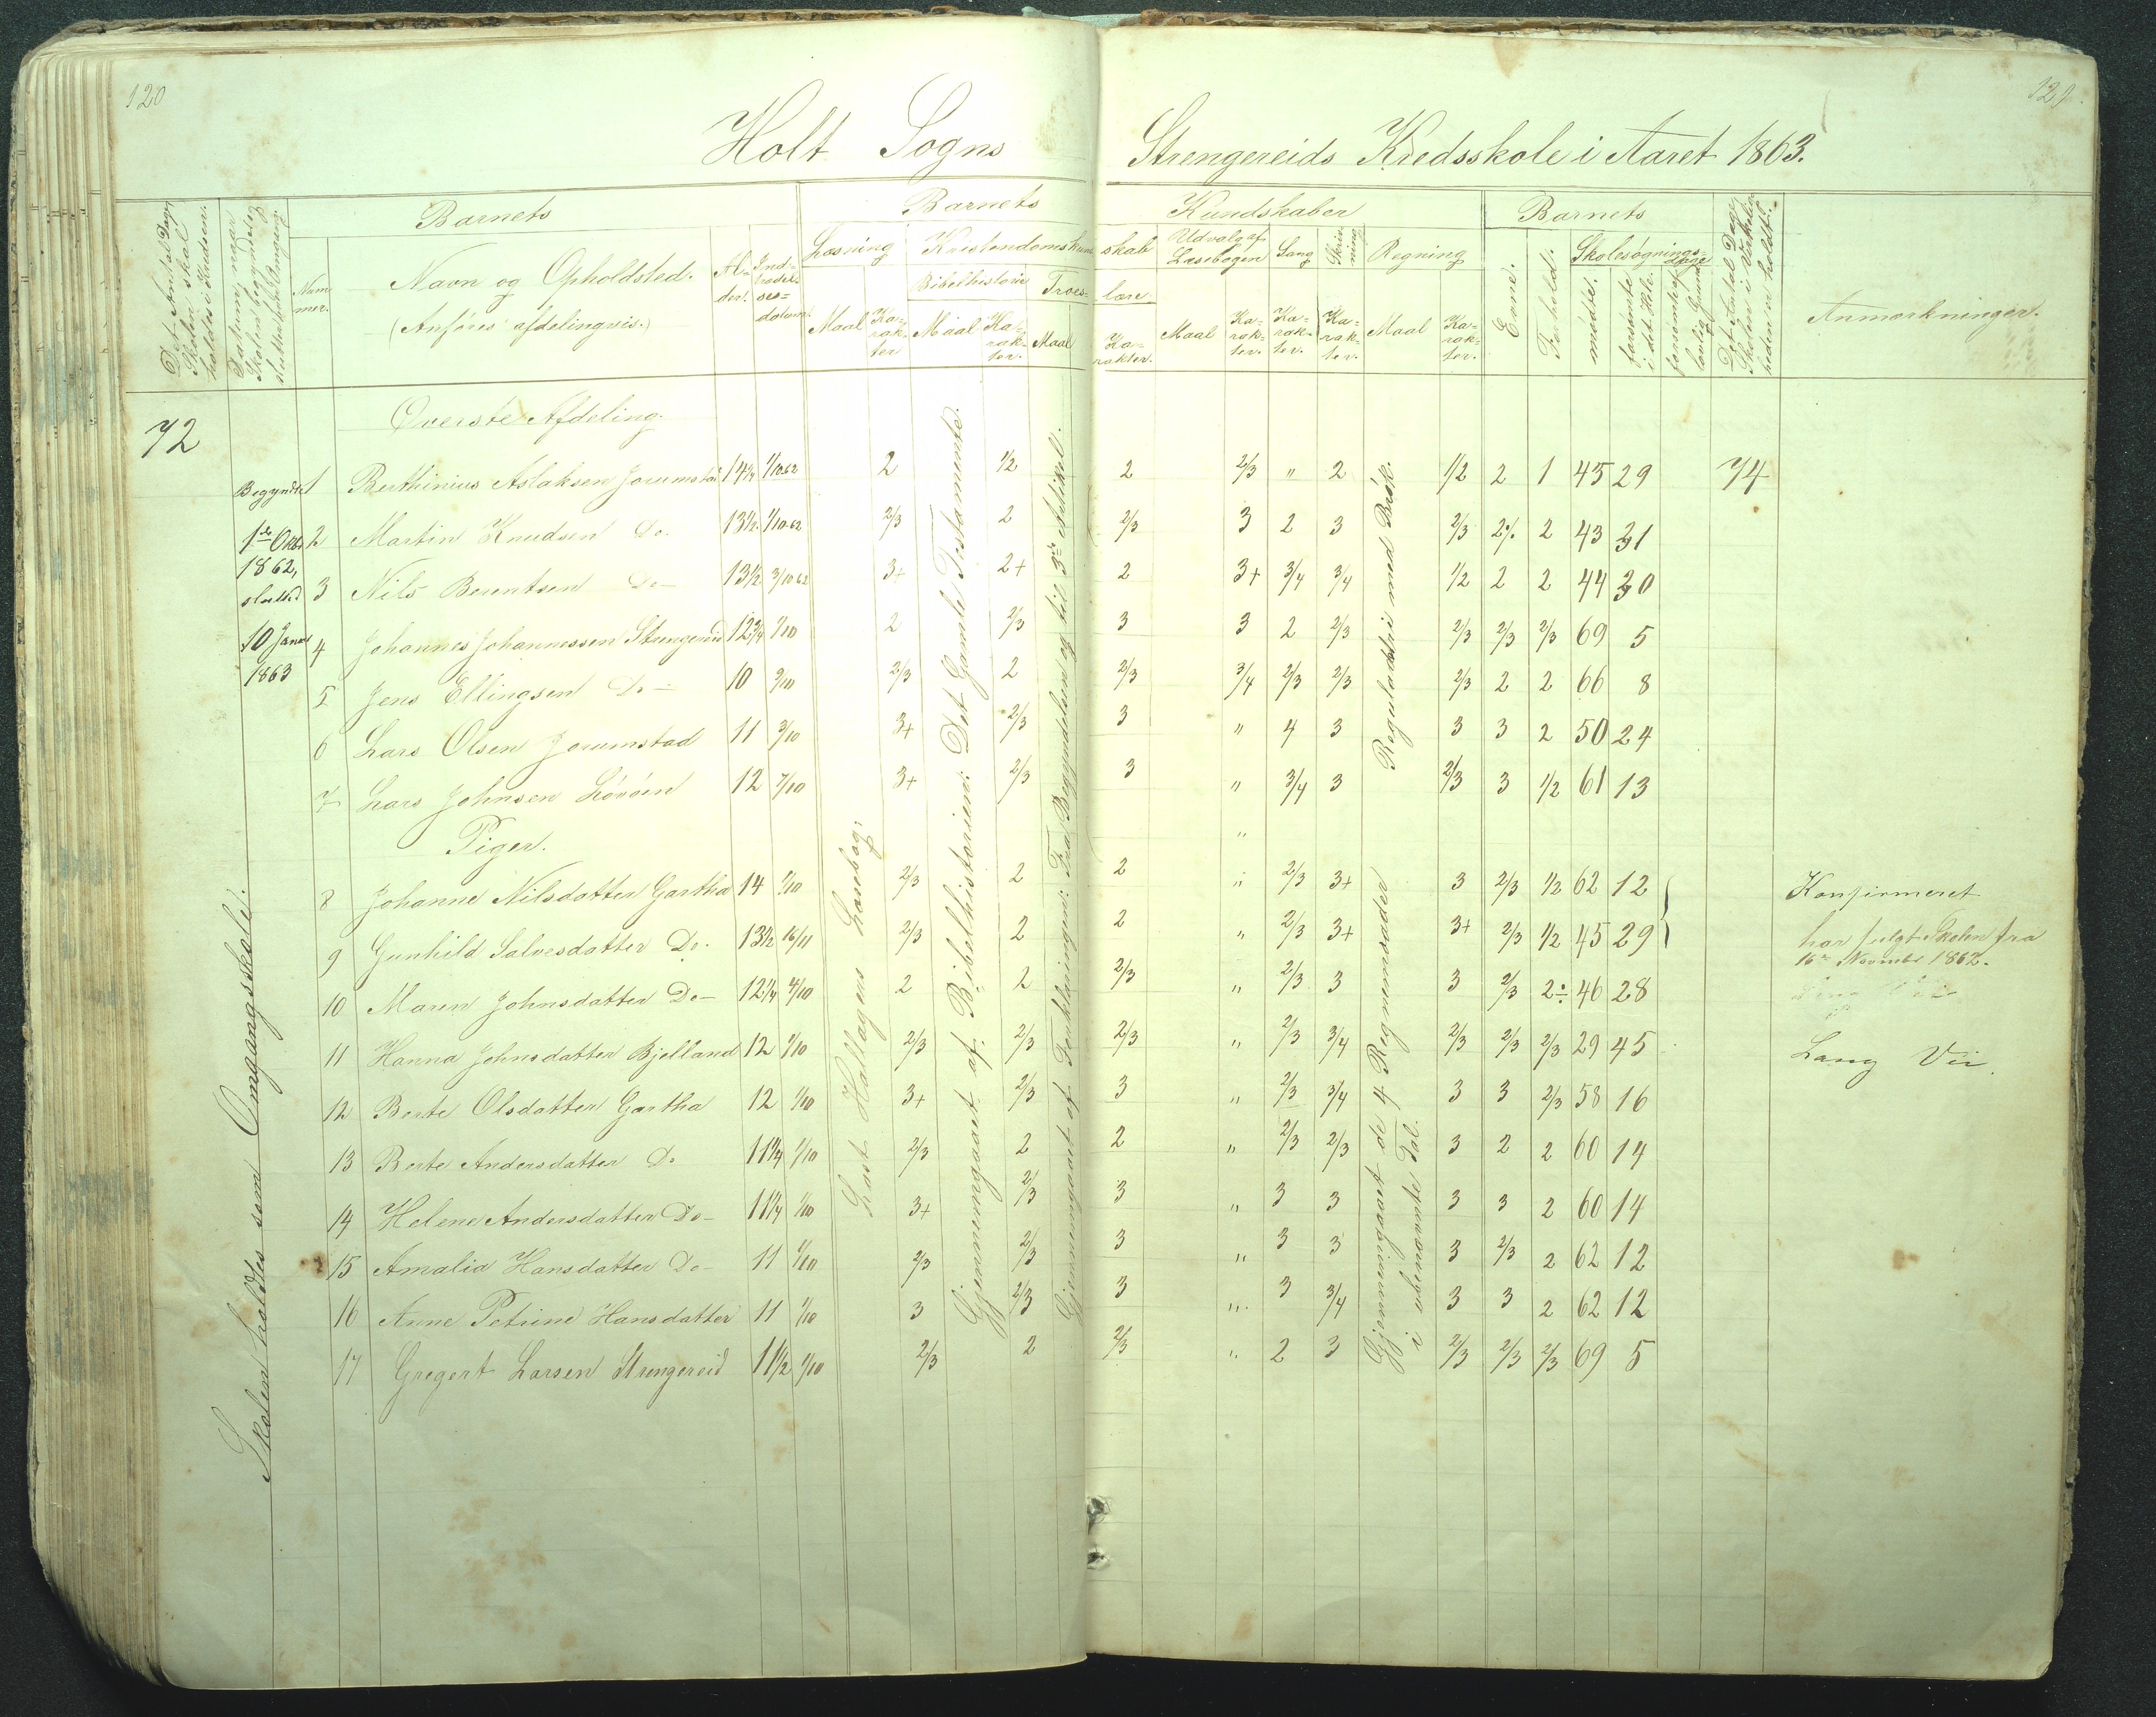 120
121
Holt Sogns Strengereids Kredsskole i Aaret 1863.
Det Antal Dage Skolen skal holdes i Kredsen.
Datum, naar Skolen begyndes og sluttes hver Omgang.
Barnets
Nummer.
Navn og Opholdsted.
(Anføres afdelingsvis.)
Alder.
Indtrædelsesdatum.
Barnets Kundskaber
Læsning
Maal
Karakter
Kristendomskundskab
Bibelhistorie
Maal
Karakter.
Troeslære.
Maal
Karakter.
Udvalg af Læsebogen
Maal
Karakter.
Sang
Karakter.
Skrivning
Karakter.
Regning
Maal
Karakter.
Barnets
Evne.
Forhold.
Skolesøgningsdage
mødte.
forsømte i det Hele.
forsømte af lovlig Grund
Det Antal Dage Skolen i Virkeligheden er holdt.
Anmærkninger.
72
Øverste Afdeling.
Begyndte 1ste Oktbr 1862, sluttet 10 Januar 1863
1 Berthinius Aslaksen Jorumstad 14¼ 1/10 62 2 1/2 2 2/3 " 2 1/2 2 1 45 29 74
2 Martin Knudsen Do. 13½ 1/10 62 2/3 2 2/3 3 2 3 2/3 2% 2 43 31
3 Nils Berentsen Do— 13½ 3/10 62 3+ 2+ 2 3+ 3/4 3/4 1/2 2 2 44 30
4 Johannes Johannessen Strengereid 12¾ 1/10 2 2/3 3 3 2 2/3 2/3 2/3 2/3 69 5
5 Jens Ellingsen Do— 10 9/10 2/3 2 2/3 3/4 2/3 2/3 2/3 2 2 66 8
6 Lars Olsen Jorumstad 11 3/10 3+ 2/3 3 " 4 3 3 3 2 50 24
7 Lars Johnsen Lövöen 12 7/10 3+ 2/3 3 " 3/4 3 2/3 3 1/2 61 13
Piger. "
8 Johanne Nilsdatter Gartha 14 1/10 2/3 2 2 " 2/3 3+ 3 2/3 1/2 62 12 Konfirmeret
9 Gunhild Salvesdatter Do. 13½ 16/11 2/3 2 2 " 2/3 3+ 3+ 2/3 1/2 45 29 har fulgt Skolen fra
16de November 1862.
10 Maren Johnsdatter Do— 12¼ 4/10 2 2 2/3 " 2/3 3 3 2/3 2÷ 46 28
11 Hanna Johnsdatter Bjelland 12 1/10 2/3 2/3 2/3 " 2/3 3/4 2/3 2/3 2/3 29 45 Lang Vei.
12 Berte Olsdatter Gartha 12 1/10 3+ 2/3 3 " 2/3 3/4 3 3 2/3 58 16
13 Berte Andersdatter Do 11¼ 1/10 2/3 2 2 " 2/3 2/3 3 2 2 60 14
14 Helene Andersdatter Do— 11¼ 1/10 3+ 2/3 3 " 3 3 3 3 2 60 14
15 Amalia Hansdatter Do— 11 1/10 2/3 2/3 3 " 3 3 3 2/3 2 62 12
16 Anne Petrine Hansdatter 11 1/10 3 2/3 3 " 3 3/4 3 3 2 62 12
17 Gregert Larsen Strengereid 11½ 1/10 2/3 2 2/3 " 2 3 2/3 2/3 2/3 69 5
Skolen holdtes som Omgangsskole.
Læst Hallagers Læsebog.
Gjennemgaaet af Bibelhistorien: Det Gamle Testamente.
Gjennemgaaet af Forklaringen: Fra Begyndelsen og til 3die Artikel.
Reguladetri med Brøk.
Gjennemgaaet de 4 Regningsarter
i ubenævnte Tal.